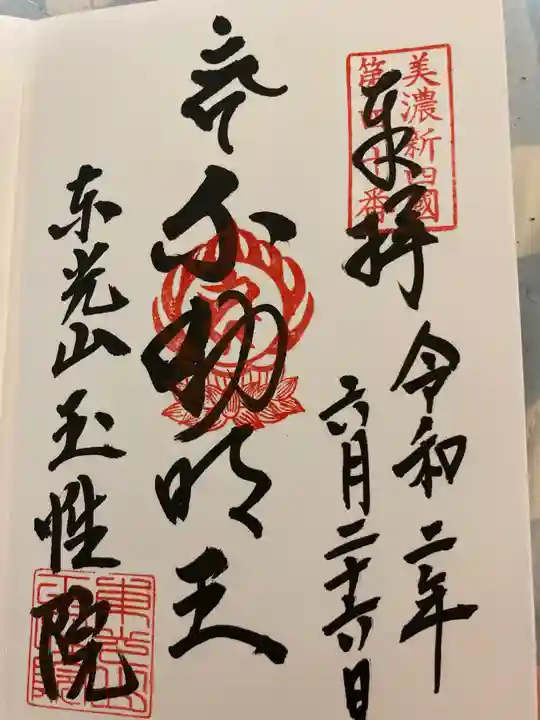 美濃新四國
奉拝
令和二年
六月二十六日
不動明王
東光山玉性院